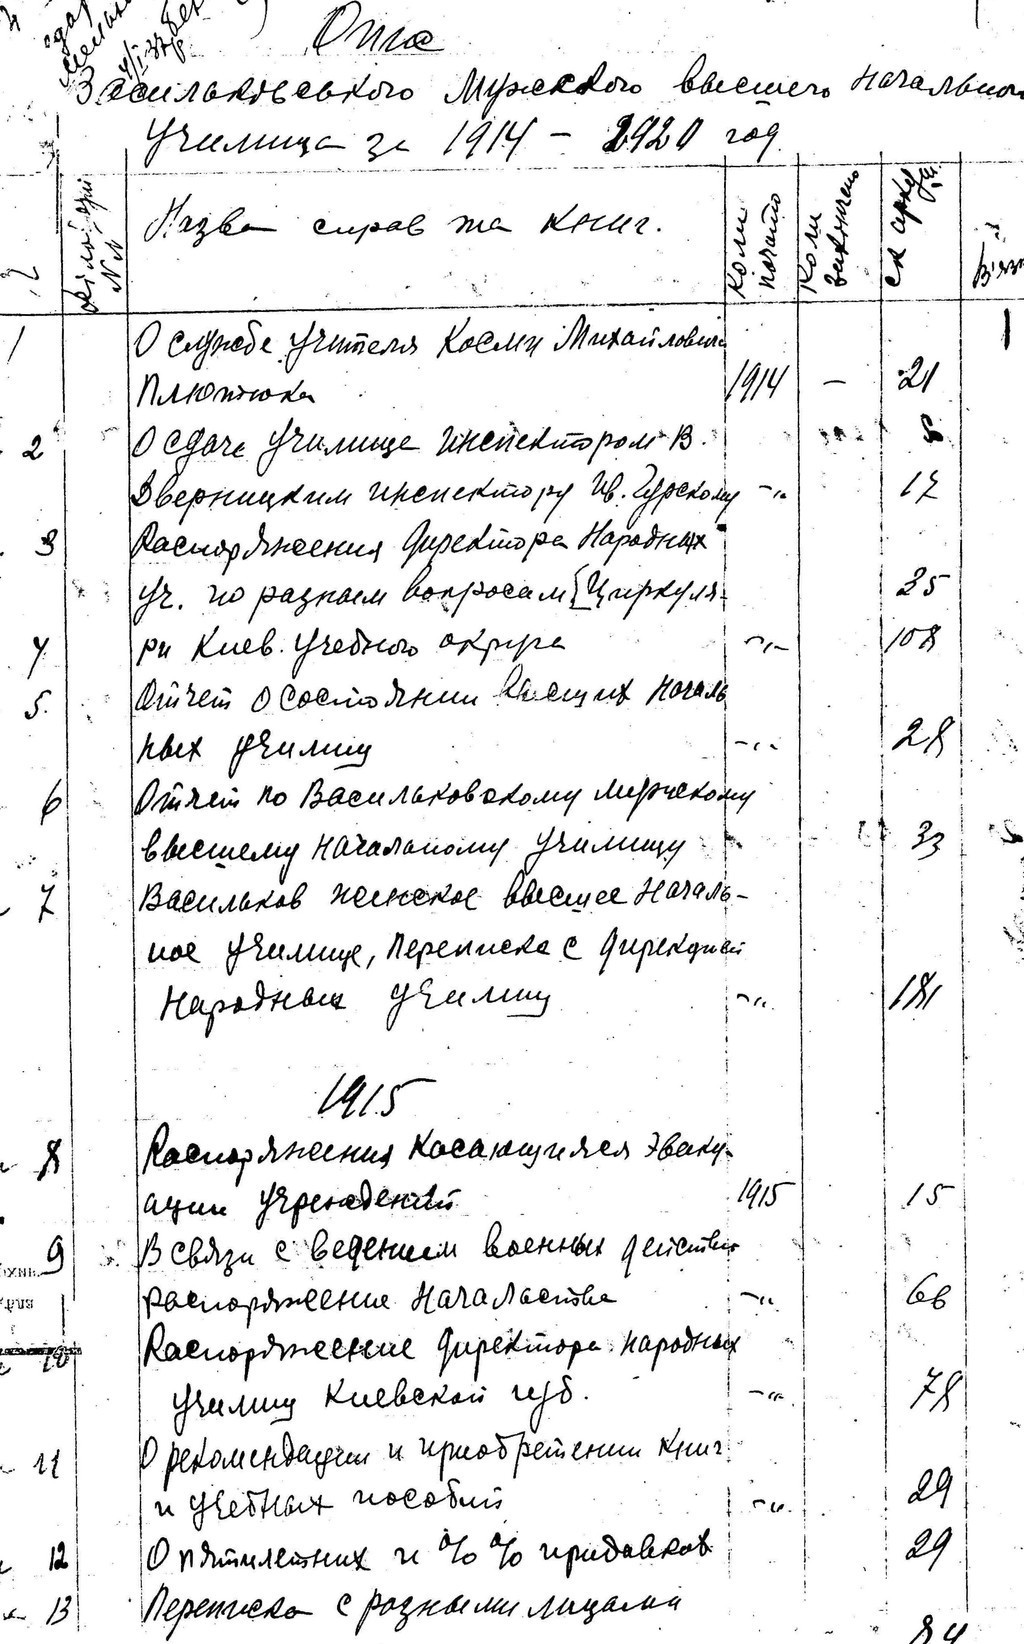 Опис
Васильковського Мужского высшего начальног
Училища за 1914 - 1920 год.
Назва справ та книг.
Коли почато
Коли закінчено
1
О службе учителя Косми Михайловича
Плютюка 1914 - 21
2 О сдаче училище инспектором В.
Дверницким инспектору Ив. Гурскому -"- 17
3 Распоряжения Директора Народных
Уч. по разным вопросам 25
4 Циркуляри Киев. Учебного округа -"- 108
5. Отчет о состоянии Высших Началь
ных училищ -"- 28
6 Отчет по Васильковскому мужскому
высшему начальному училищу 33
7 Васильков женское высшее Началь-
ное училище, переписка с дирекцией
Народных училищ -"- 181
1915
8 Распоряжения касающияся эваку-
ации учреждений 1915 15
9 В связи с ведением военных действий
распоряжение Начальства -"- 66
10 Распоряжение директора народных
училищ Киевской губ. -"- 78
11 О рекомендации и приобретении книг
и учебных пособий -"- 29
12 О пятилетних и %% придавков 29
13 Переписка с разными лицами 84